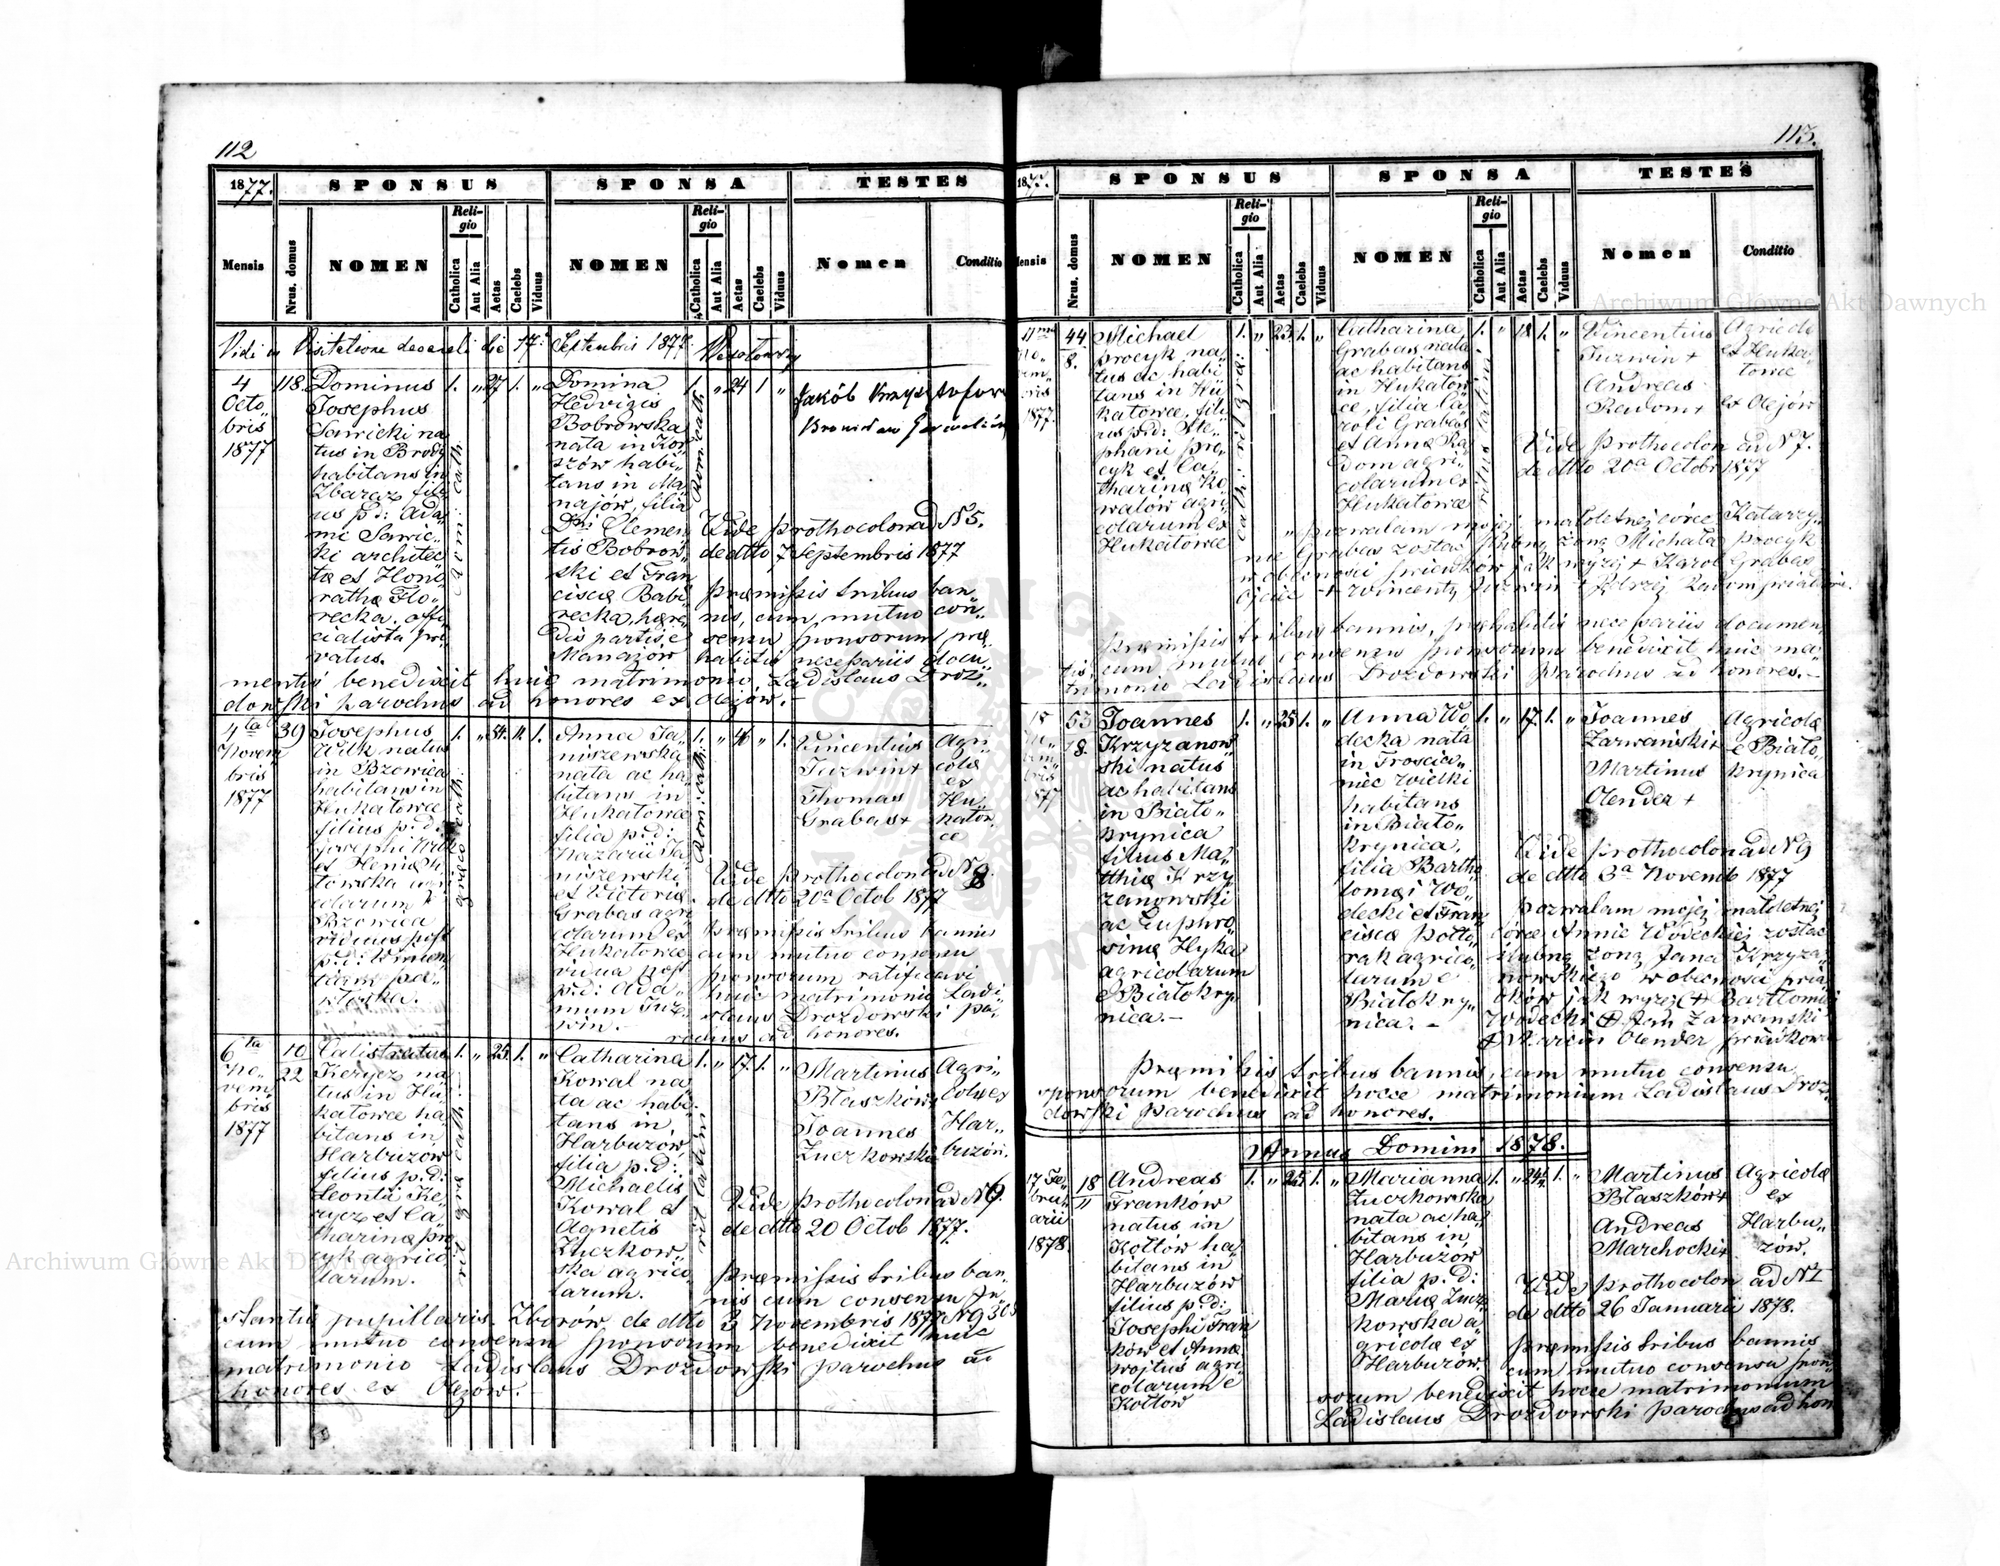 112
1877.
SPONSUS
SPONSA
TESTES
Mensis
Nrus. domus
NOMEN
Religio
Catholica
Aut Alia
Aetas
Caelebs
Viduus
NOMEN
Religio
Catholica
Aut Alia
Aetas
Caelebs
Viduus
Nomen
Conditio
Vidi in Visitatione decanali die 17. Septembris 1877
4
Octo„
bris
1877
118.
Dominus
Josephus
Sawicki na
tus in Brody
habitans in
Zbaraz fili
us p.d: Ada
mi Sawic„
ki architec„
tæ et Hono
rathæ Flo„
recka, offi
cialista pri
vatus.
1. „ 27 1. „
Domina
Hedvigis
Bobrowska
nata in Kor
szów habi„
tans in Ma
najów, filia
Dni Clemen„
tis Bobrow„
ski et Fran
ciscæ Babi
recka, hære
dis partis è
Manajów
Rom: cath:
1. „ 24 1 „
Jakób
Vide prothocolon ad N 5.
de dtto 7 Septembris 1877
Præmissis tribus ban„
nis, cum mutuo con„
sensu sponsorum, præ
habitis necessariis docu„
mentis benedixit huic matrimonio, Ladislaus Droz„
dowski parochus ad honores ex Olejów.
4ta
Novem
bris
1877
39
Josephus
Wilk natus
in Bzowica
habitans in
Hukatowce
filius p.d:
Josephi Wilk
Bzowica
viduus post
græco cath:
1. „ 54. „ 1.
Anna Ja„
niszewska
nata ac ha
bitans in
Hukatowce
filia p.d:
Nazarii Ja
niszewski
et Victoriæ
Grabas agri
colarum ex
Hukatowce
vidua post
p.d: Ada„
mum Juz„
win.
Rom: cath:
1. „ 46 „ 1.
Vincentius
Juzwin +
Thomas
Grabas +
Agri
colæ
ex
Hu„
katow„
ce
Vide prothocolon ad N 8.
de dtto 20a Octob 1877
Præmissis tribus bannis
cum mutuo consensu
sponsorum ratificavi
huic matrimonio Ladi„
slaus Drozdowski pa„
rochus ad honores.
6ta
No„
vem„
bris
1877
10
22
Calistratus
Kerycz na
tus in Hu
katowce ha
bitans in
Harbuzow
filius p.d:
Leonti Ke
rycz et Ca
tharinæ Pro
cyk agrico
larum.
rit græ cath:
1. „ 25. 1. „
Catharina
Kowal na
ta ac habi
tans in
Harbuzów,
filia p.d:
Michaelis
Kowal et
Agnetis
Zuczkow„
ska agrico„
larum.
rit latini
1. „ 17. 1. „
Martinus
Błaszków
Joannes
Zuczkowski
Agri„
colæ ex
Har„
buzów.
Vide prothocolon ad N 6.
de dtto 20 Octob 1877.
Præmissis tribus ban„
nis cum consensu In„
stantiæ pupillaris Zborów de dtto 3 Novembris 1877 N 9303
cum mutuo consensu sponsorum benedixit huic
matrimonio Ladislaus Drozdowski parochus ad
honores ex Olejów.
113.
SPONSUS
SPONSA
TESTES
Mensis
Nrus. domus
NOMEN
Religio
Catholica
Aut Alia
Aetas
Caelebs
Viduus
NOMEN
Religio
Catholica
Aut Alia
Aetas
Caelebs
Viduus
Nomen
Conditio
11ma
No„
vem„
bris
1877.
44
8.
Michael
Procyk na„
tus ac habi„
tans in Hu„
katowce, fili„
us p.d: Ste„
phani Pro„
cyk et Ca„
tharinæ Ko„
walów agri„
colarum ex
Hukatowce
cath: rit græ:
1. „ 23. 1. „
Catharina
Grabas nata
ac habitans
in Hukatow„
ce, filia Ca„
roli Grabas
et Anna Ra
dom agri„
colarum ex
Hukatowce
ritus latini
1. „ 18 1. „
Vincentius
Juzwin +
Andreas
Radom +
Agricola
ex Huka„
towce
ex Olejów
Vide prothocolon ad N 7.
de dtto 20a Octobr 1877
„Pozwalam mojej małoletnej córce Katarzy„
nie Grabas zostać ślubną żoną Michała Procyk
w obecności świadków jak wyżej + Karol Grabas
Ojciec + Wincenty Juzwin + Jędrzej Radom świadkowie.
Præmissis tribus bannis, præhabitis necessariis documen„
tis, cum mutuo consensu sponsorum benedixit huic ma„
trimonio Ladislaus Drozdowski Parochus ad honores.
18
No„
vem„
bris
1877
53
78.
Joannes
Krzyzanow
ski natus
ac habitans
in Biało„
krynica
filius Ma„
thiæ Krzy
zanowski
ac Euphro
sinæ Hyka
agricolarum
e Białokry„
nica.
1. „ 25 1. „
Anna Wo
decka nata
in Troscia„
niec wielki
habitans
in Biało„
krynica,
filia Bartho
lomæi Wo„
decki et Fran
ciscæ Połto„
rak agrico„
larum e
Białokry„
nica.
1. „ 17. 1. „
Joannes
Zarwański +
Martinus
Olender +
Agricolæ
e Biało„
krynica
Vide prothocolon ad N 9
de dtto 3a Novemb 1877
Pozwalam mojej małoletnej
córce Annie Wodeckiej zostać
ślubną żoną Jana Krzyza„
nowskiego w obecności świa„
dków jak wyżej + Bartłomiej
Wodecki + Jan Zarwanski
+ Marcin Olender świadkowie
Præmissis tribus bannis, cum mutuo consensu
sponsorum benedixit hocce matrimonium Ladislaus Droz„
dowski parochus ad honores.
Annus Domini 1878.
17 Fe„
bru„
arii
1878.
18
11
Andreas
Franków
natus in
Kołtów ha„
bitans in
Harbuzów
filius p.d:
Josephi Fran
ków et Annæ
Wojtus agri
colarum e
Kołtów
1. „ 25. 1. „
Marianna
Zuczkowska
nata ac ha„
bitans in
Harbuzów
filia p.d:
Mariæ Zucz
kowska a„
gricolæ ex
Harbuzów.
1. „ 24 1. „
Martinus
Błaszków +
Andreas
Marchocki +
Agricolæ
ex
Harbu„
zów.
Vide prothocolon ad N I
de dtto 26 Januarii 1878.
Præmissis tribus bannis
cum mutuo consensu spon„
sorum benedixit hocce matrimonium
Ladislaus Drozdowski parochus ad hon
Archiwum Główne Akt Dawnych
Archiwum Główne Akt Dawnych